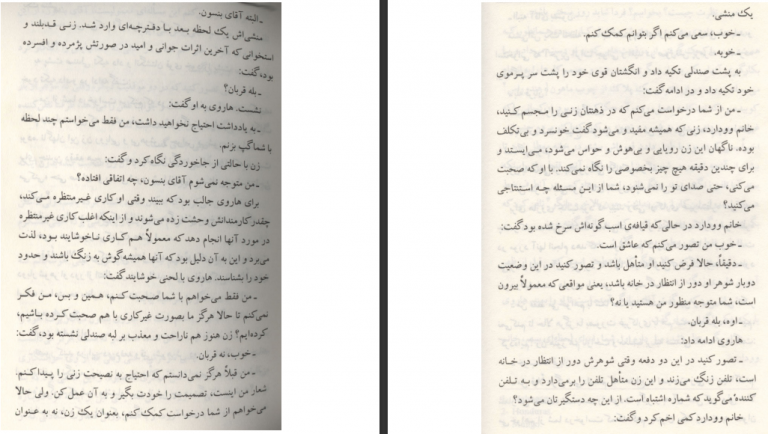 ـ البته آقای بنسون.
منشی‌اش یک لحظه بعد با دفترچه‌ای وارد شد. زنـی قـدبلند و
استخوانی که آخرین اثرات جوانی و امید در صورتش پژمرده و افسرده
بود، گفت:
ـ بله قربان؟
نشست. هاروی به او گفت:
ـ به یادداشت احتیاج نخواهید داشت، من فقط می‌خواستم چند لحظه
با شما گپ بزنم.
زن با حالتی از جاخوردگی نگاه کرد و گفت:
ـ من متوجه نمی‌شوم آقای بنسون، چه اتفاقی افتاده؟
برای هاروی جالب بود که ببیند وقتی او کاری غیـرمنتظره می‌کند،
چقدر کارمندانش وحشت زده می‌شوند و از اینکه اغلب کاری غیرمنتظره
در مورد آنها انجام دهد که معمولاً هـم کـاری نـاخوشایند بود، لذت
می‌برد و این به آن دلیل بود که آنها همیشه گوش به زنگ باشند و حدود
خود را بشناسند. هاروی با لحنی خوشایند گفت:
ـ من فقط می‌خواهم با شما صـحبت کـنم، هـمین و بس، مـن فکـر
نمی‌کنم تا حالا هرگز ما بصورت غیرکاری با هم صحبت کرده بـاشیم،
کرده‌ایم؟ زن هنوز هم ناراحت و معذب بر لبه صندلی نشسته بود، گفت:
ـ خوب، نه قربان.
ـ من قبلاً هرگز نمی‌دانستم که احتیاج به نصیحت زنـی را پـیدا کـنم.
شعار من اینست، تصمیمت را خودت بگیر و به آن عمل کن. ولی حالا
می‌خواهم از شما درخواست کمک کنم، بعنوان یک زن، نه به عنوان
یک منشی.
ـ خوب، سعی می‌کنم اگر بتوانم کمک کنم.
ـ خوبه.
به پشت صندلی تکیه داد و انگشتان قوی خود را پشت سر پرموی
خود تکیه داد و در ادامه گفت:
ـ من از شما درخواست می‌کنم که در ذهنتان زنـی را مـجسم کـنید،
خانم وودارد، زنی که همیشه مفید و می‌شود گفت خونسرد و بی‌تکلف
بوده. ناگهان این زن رویایی و بی‌هوش و حواس می‌شود، می‌ایستد و
برای چندین دقیقه هیچ چیز بخصوصی را نگاه نمی‌کند. با او که صحبت
می‌کنی، حتی صدای تو را نمی‌شنود، شما از ایـن مسـئله چـه اسـتنتاجی
می‌کنید؟
خانم وودارد در حالی که قیافه‌ی اسب گونه‌اش سرخ شده بود گفت:
ـ خوب من تصور می‌کنم که عاشق است.
ـ دقیقاً، حالا فرض کنید او متأهل باشد و تصور کنید در این وضعیت
دوبار شوهر او دور از انتظار در خانه باشد، یعنی مواقعی که معمولاً بیرون
است، شما متوجه منظور من هستید یا نه؟
ـ اوه، بله قربان.
هاروی ادامه داد:
ـ تصور کنید در این دو دفعه وقتی شوهرش دور از انتظار در خـانه
است، تلفن زنگ می‌زند و این زن متأهل تلفن را برمی‌دارد و بـه تـلفن
کننده می‌گوید که شماره اشتباه است. از این چه دستگیرتان می‌شود؟
خانم وودارد کمی اخم کرد و گفت: